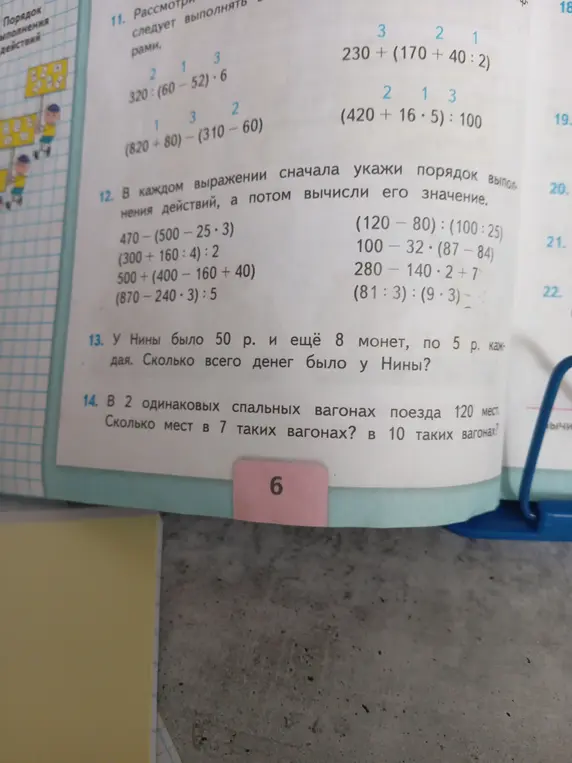 Порядок
выполнения
действий
11. Рассмотри
следует выполнять
рами.
2 1 3
320 : (60 − 52) · 6
3 2 1
230 + (170 + 40 : 2)
1 3 2
(820 + 80) − (310 − 60)
2 1 3
(420 + 16 · 5) : 100
12. В каждом выражении сначала укажи порядок выпол-
нения действий, а потом вычисли его значение.
470 − (500 − 25 · 3)
(120 − 80) : (100 : 25)
(300 + 160 : 4) : 2
100 − 32 · (87 − 84)
500 + (400 − 160 + 40)
280 − 140 · 2 + 7
(870 − 240 · 3) : 5
(81 : 3) : (9 · 3)
13. У Нины было 50 р. и ещё 8 монет, по 5 р. каж-
дая. Сколько всего денег было у Нины?
14. В 2 одинаковых спальных вагонах поезда 120 мест.
Сколько мест в 7 таких вагонах? в 10 таких вагонах?
6
18
19.
20.
21.
22.